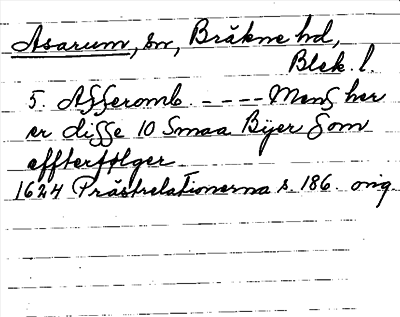 Asarum, sn, Bräkne hd,
Blek. l.
5. Asseromb. - - - - Mens her
er disse 10 Smaa Byer som
effterfølger
1624 Prästrelationerna s. 186. orig.